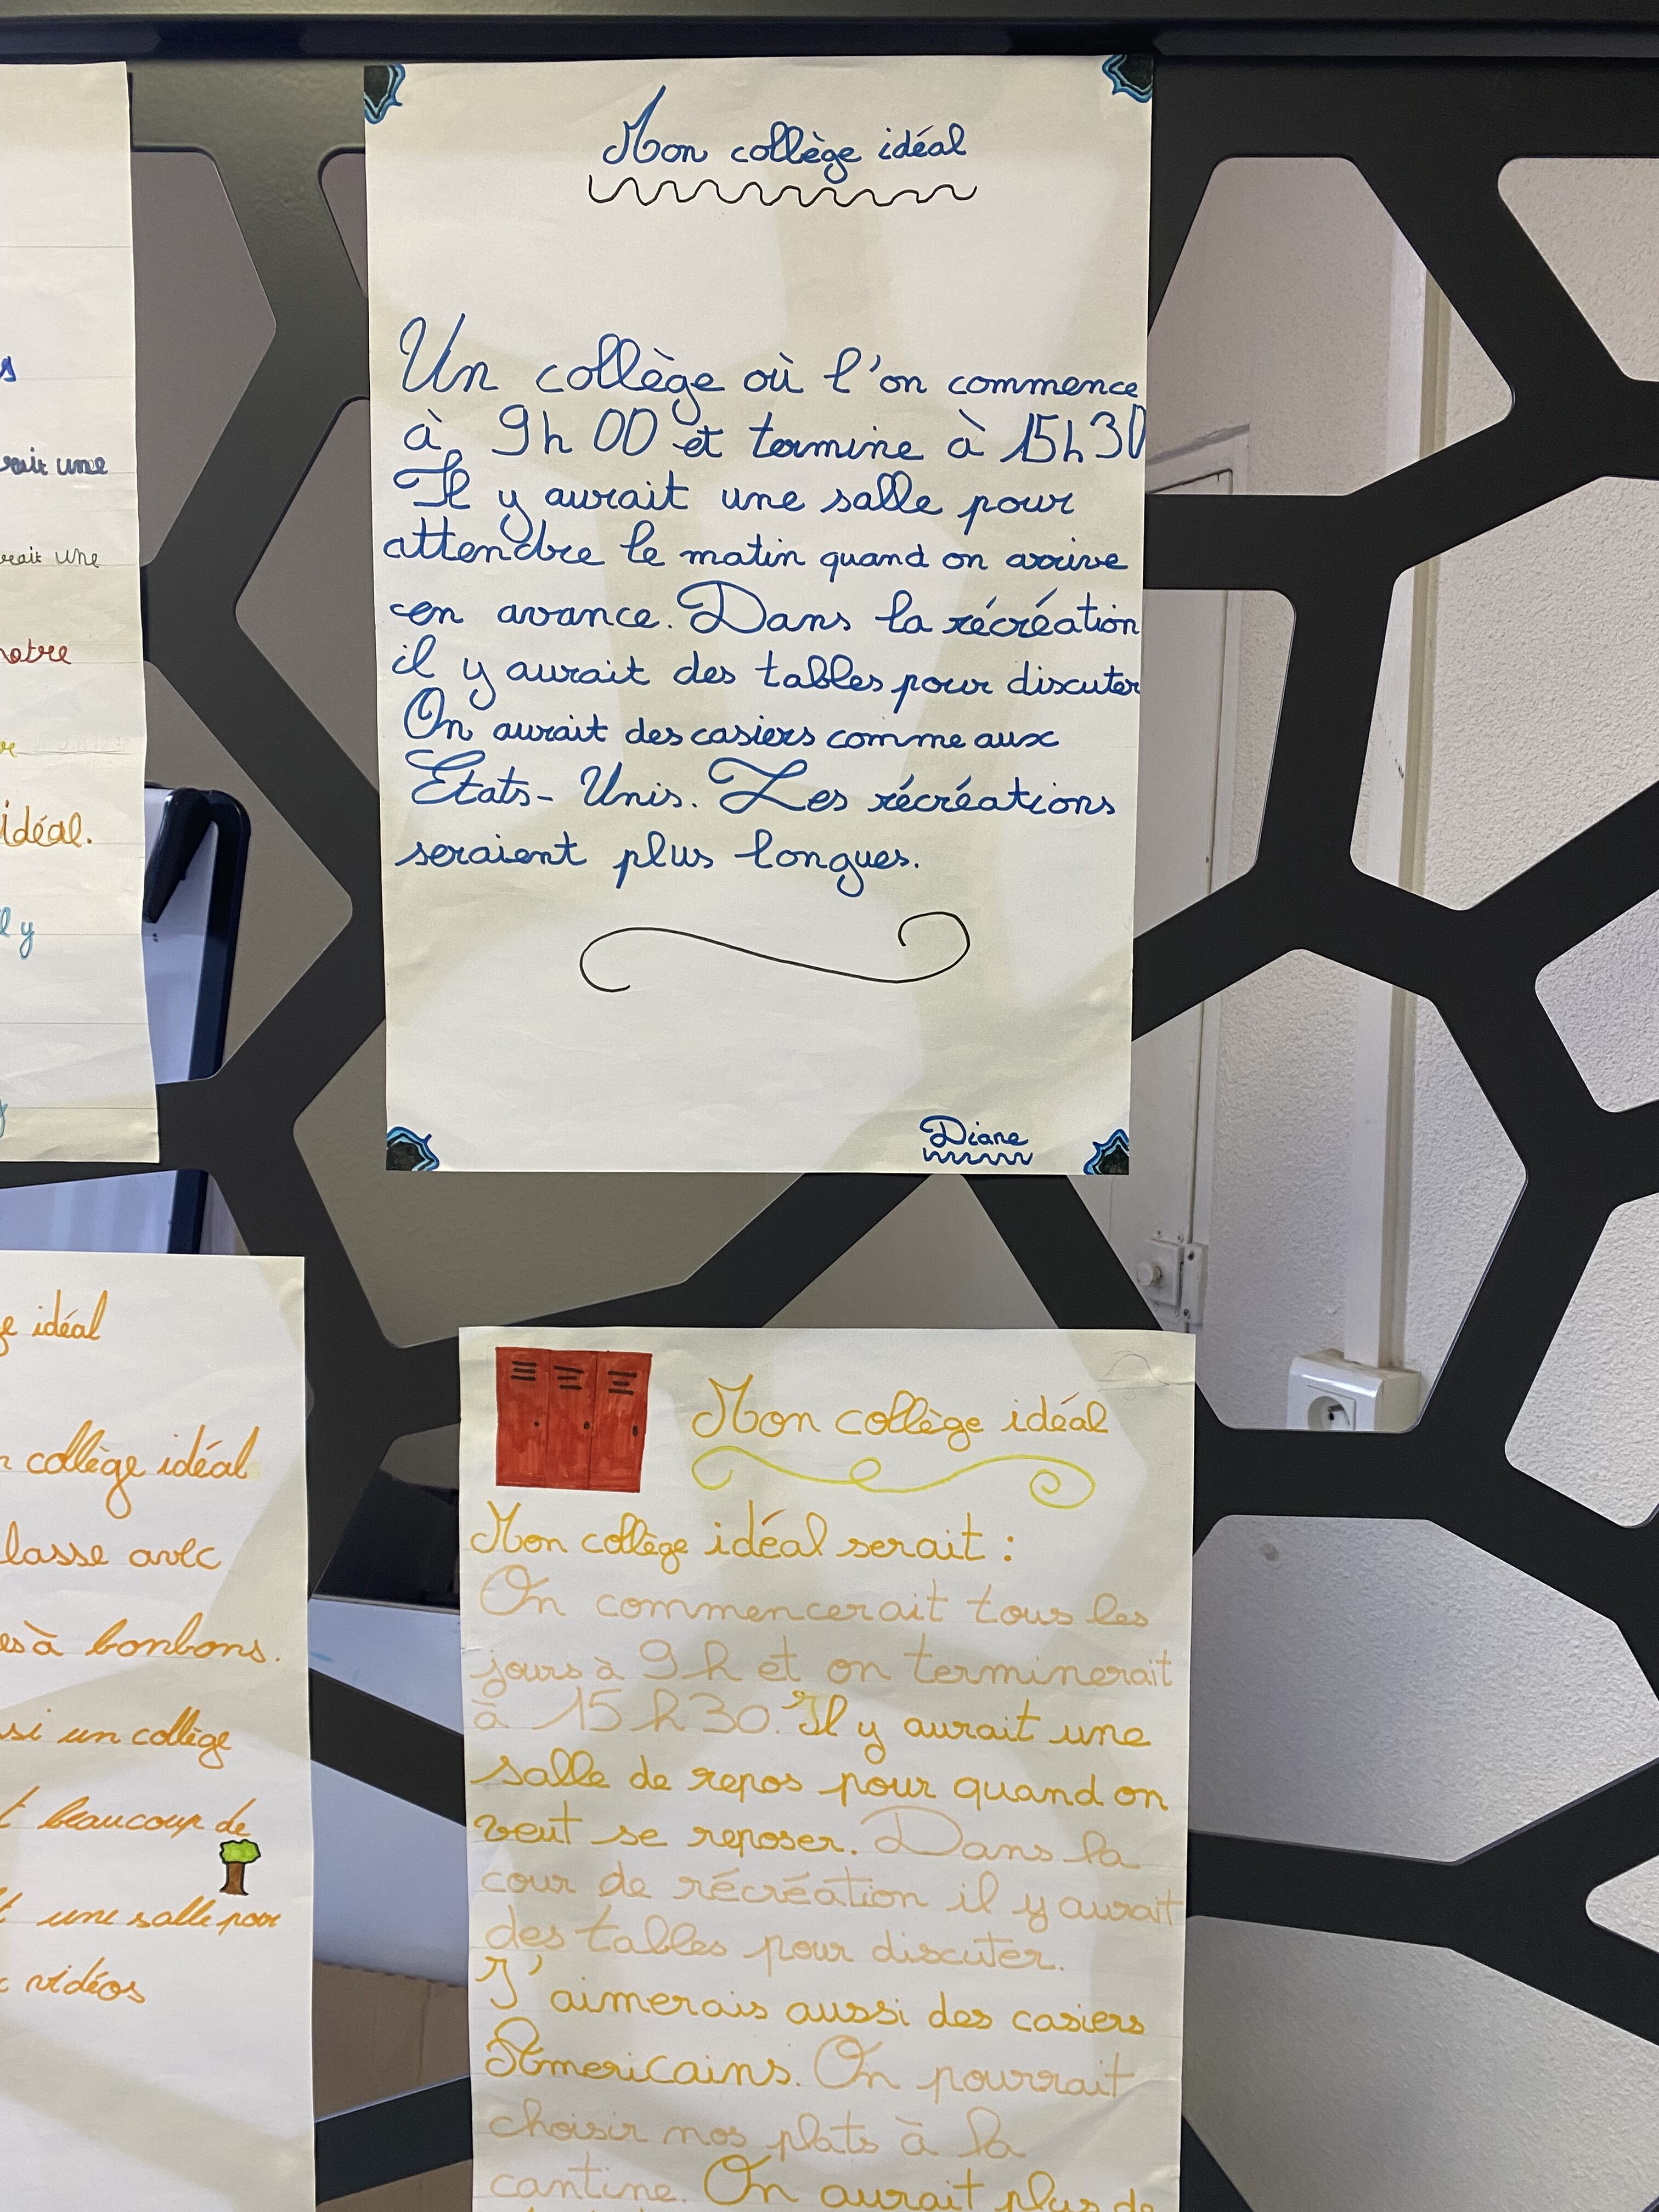 Mon collège idéal
Un collège où l'on commence
à 9h00 et termine à 15h30
Il y aurait une salle pour
attendre le matin quand on arrive
en avance. Dans la récréation
il y aurait des tables pour discuter
On aurait des casiers comme aux
Etats-Unis. Les récréations
seraient plus longues.
Diane
une
une
notre
idéal.
y
idéal
collège idéal
avec
à bonbons.
un collège
beaucoup de
une salle pour
vidéos
Mon collège idéal
Mon collège idéal serait :
On commencerait tous les
jours à 9h et on terminerait
à 15h30. Il y aurait une
salle de repos pour quand on
veut se reposer. Dans la
cour de récréation il y aurait
des tables pour discuter.
J'aimerais aussi des casiers
Américains. On pourrait
choisir nos plats à la
cantine. On aurait plus de